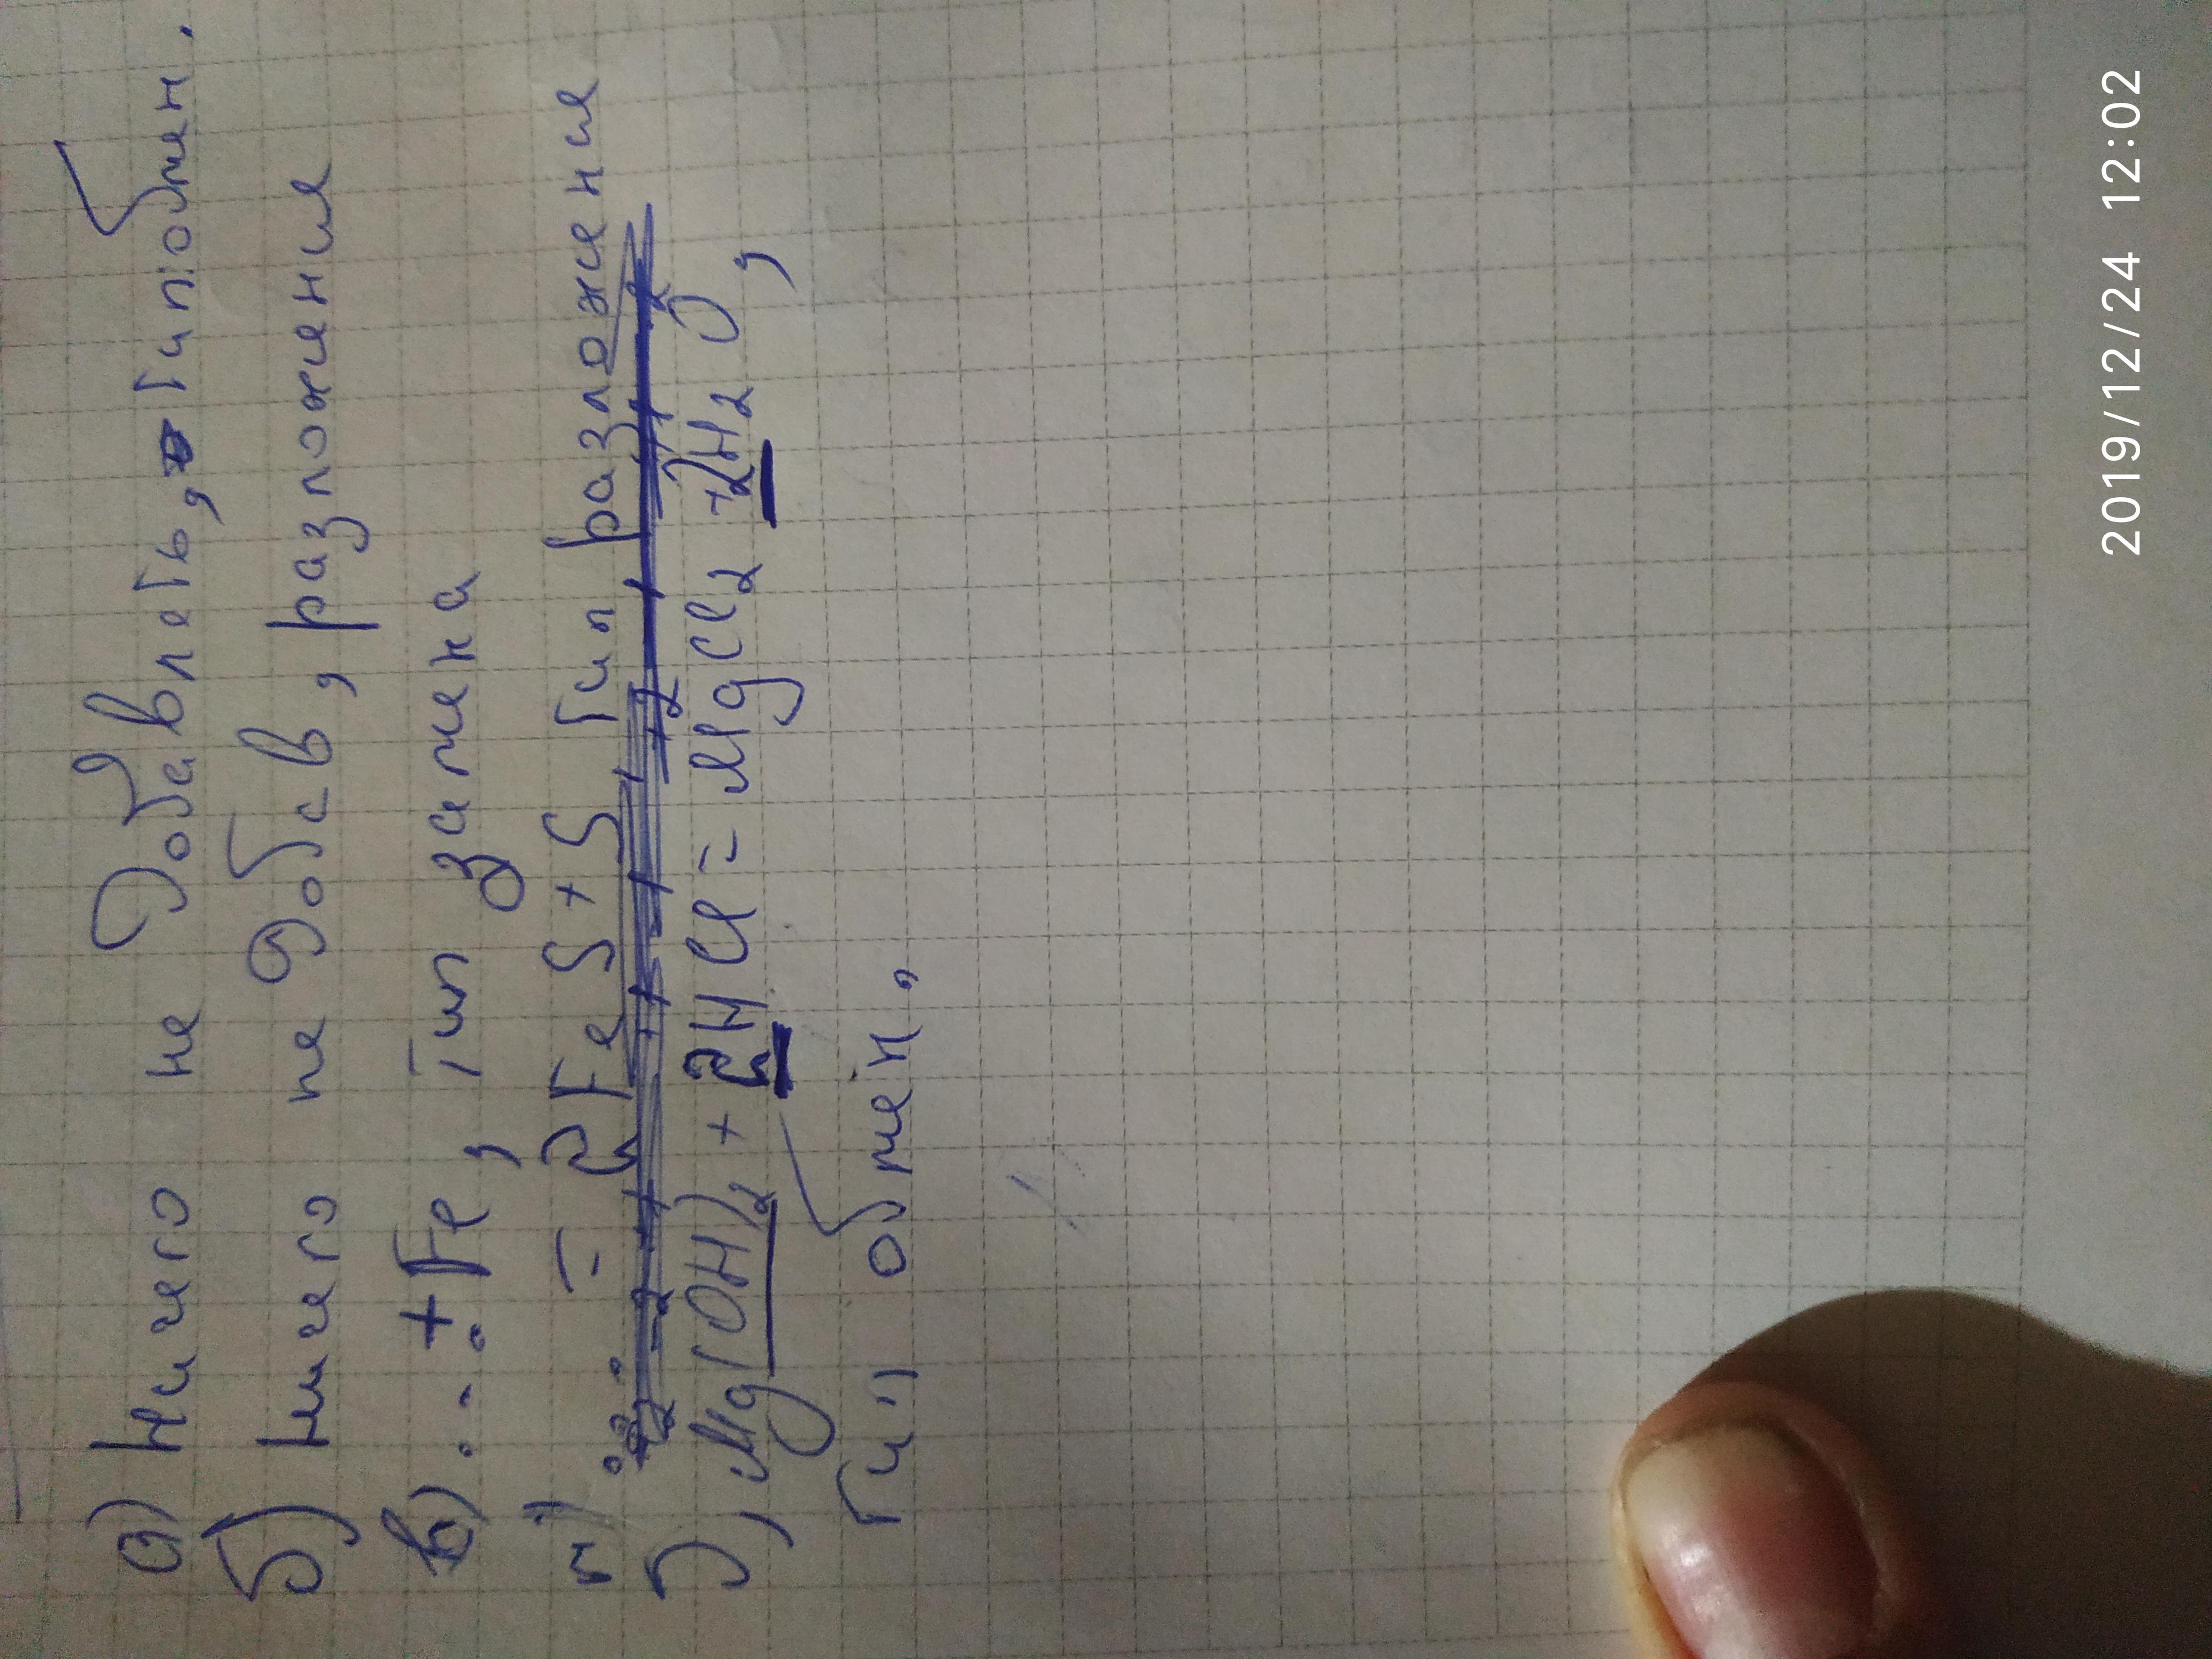 а) Ничего не добавлять, тип: обмен.
б) Ничего не добав, разложения
в) ...+Fe, тип замена
г) ... = 2FeS+S тип разложения
д) Mg(OH)2 + 2HCl = MgCl2 + 2H2O,
тип обмен.
2019/12/24 12:02